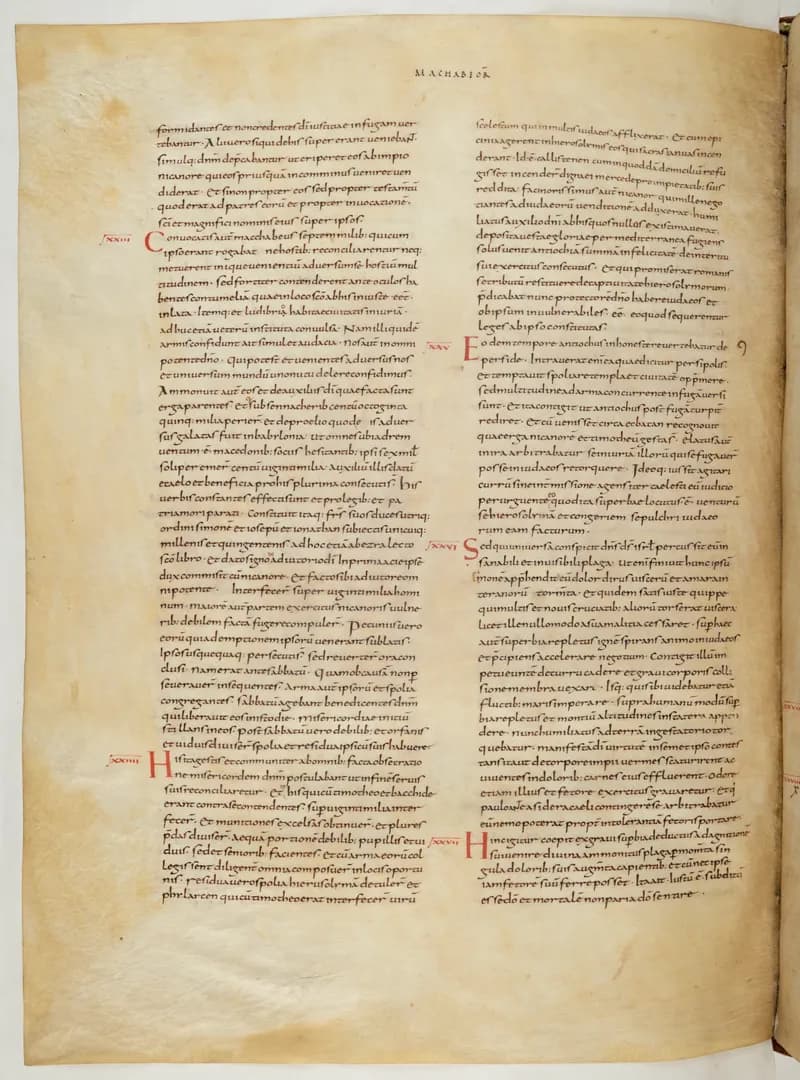 MACHABIOR̄
formidantes et noncredentes dī iustitiae infugam uer
tebantur · Aliuero siquid eis super erant uenibant̄
simulq; dn̄m dep̄cabantur ut eriperet eos abimpio
nicanore quieos priusquā incomminus uenirent uen
diderat · Et sinon propter eos sed propter testamtū
quoderat adpatres eorū et propter inuocationē ·
sc̄i et magnifici nominis eius super ipsos ·
xxiii Conuocatis aut̄ macchabeus septem milib; quicum
ipso erant rogabat nehostib; reconciliarentur neq;
metuerent inique uenientiū aduersumsé hostiū mul
titudinem · sed fortiter contenderent ante oculos ha
bentes contumeliā quae inloco sc̄o abhis iniuste ēēt ·
inlata · Itemq; et ludibrio habitae ciuitatis iniuriā ·
adhuc etiā ueterū instituta conuulsa · Nam illi quidē
armis confidunt ait simulet audacia · nos aut̄ inomni
potente dn̄o · Qui potest et uenientes aduersus nos
et uniuersum mundū uno nutu delere confidimus ·
Ammonuit aut̄ eos et deauxiliis dī quae facta sunt
erga parentes · Et sub sennacherib centū octoginta
quinq; milia perier̄ et deproelio quod eis aduer
sus galatas fuit inbabilonia · ut omnes ubi adrem
uentum ē · macedonib; sociis hesitantib; ipsi sex mil̄
soli peremer̄ centū uiginti milia · Auxiliū illis datū
etaelo et beneficia pro his plurima consecuti · His
uerbis constantes effecti sunt et prolegib; et pa
tria mori parati · Constituit itaq; fr̄s suos duces utriq;
ordini simonē et iosepū et ionathan subiectis unicuiq;
millenis et quingentenis ad hoc etiā abezra lecto
sc̄o libro · Et dato signo adiutorio dī Inprima acie ipse
dux commisit cū nicanore · Et facto sibi adiutore om
nipotente · Interfecer̄ super uiginti milia homi
num · maiorē aut̄ partem exercitus nicanoris uulne
rib; debilem factā fugere compuler̄ · Pecuniis uero
eorū qui ademptionem ipsorū uenerant sublatis ·
Ipsos usquequaq; persecuti · sed reuerter̄ ora con
clusi · Nam erat ante sabbatū · Quam ob causā non p̄
seuerauer̄ insequentes · Arma aut̄ ipsorū et spolia
congregantes · sabbatū agebant benedicentes dn̄m
qui liberauit eos inisto die · misericordiae initiū
stillans ineos · post sabbatū uero debilib; et orfanis
et uiduis diuiser̄ spolia et residua ipsi cū suis habuere
xxiiii His itaq; gestis et communiter abomnib; facta obsecratio
ne misericordem dn̄m postulabant ut infine seruis
suis reconciliaretur · Et his qui cū timotheo et bacchide
erant contra se contendentes · sup̄ uiginti milia inter
fecer̄ · Et munitiones excelsas obtinuer̄ · et plures
p̄das diuiser̄ · Aequā portionē debilib; pupillis et ui
duis · sed et seniorib; facientes · Et cū arma eorū col
legissent diligent̄ omnia composuer̄ inlocis oportu
nis · residua uero spolia hierusolymā detuler̄ · et
philarcen qui cū timotheo erat interfecer̄ uirū
scelestum qui inmultis iudaeos afflixerat · Et cum epi
nicia agerent inhierosolimis eos qui sacras ianuas incen
derant · Id ē callistenen cum inquoddā domiciliū refu
gisset incender̄ digna ei mercede proimpietatib; suis
reddita · Facinorissimus aut̄ nicanor qui mille nego
ciantes adiudaeorū uenditionē adduxerat · humi
liatus auxilio dn̄i abhis quos nullos existimauerat ·
deposita ueste gloriae per mediterranea fugiens
solus uenit antiochiā summā infelicitatē deinteritu
sui exercitus consecutus · Et qui promiserat romanis
se tributū restituere decaptiuitate hierosolymorum ·
p̄dicabat nunc protectorē dn̄o habere iudaeos et
obipsum inuulnerabiles ēē · eoquod sequerentur
leges abipso constitutas ·
xxv Eodem tempore antiochus inhoneste reuertebatur de
perside · Intrauerat enim eaquae dicitur persipolis
et temptauit spoliare templa et ciuitatē opp̄mere ·
sed multitudine adarma concurrente infugā uersi
sunt · Et ita contigit ut antiochus post fugā turpit̄
rediret · Et cū uenisset circa ecbatan recognouit
quae erga nicanorē et timotheū gesta s̄ · Elatus aut̄
inira arbitrabatur se iniuriā illorū qui se fugauer̄
posse iniudaeos retorquere · Ideoq; iussit agitari
currū sine intmissione agens iter caelesti eū iudicio
perurguente eo quod ita superbae locutus ē · uenturū
se hierosolymā et congeriem sepulchri iudaeo
rum eam facturum ·
xxvi Sed qui uniuersa conspicit dn̄s ds̄ isrl̄ percussit eum in
sanabili et inuisibili plaga · Ut enim finiuit hunc ipsū
smonē apphendit eū dolor dirus uiscerū et amara in
teranorū tormta · Et quidem satis iuste quippe
qui multis et nouis cruciatib; aliorū torserat uiscera ·
licet ille nullomodo asua malitia cessaret · sup̄ haec
aut̄ superbia repletus ignē spirans animo iniudaeos
et p̄cipiens accelerare negotium · Contigit illum
petu euntē decurru cadere et graui corporis colli
sione membra uexari · Isq; qui sibi uidebatur etiā
fluctib; maris imperare · supra humanū modū sup̄
bia repletus et montiū altitudines instatera appen
dere · nunc humiliatus adterrā ingestatorio tor
quebatur · manifestā dī uirtutē insemetipso contes
tans ita ut decorpore impii uermes scaturirent ac
uiuentes indolorib; carnes eius effluerent · Odore
etiam illius et fetore exercitus grauaretur · Et q̄
paulo ante asidera caeli contingere sé arbitrabatur
eū nemo poterat propt̄ intolerantiā fetoris portare ·
xxvii Hinc igitur coepit exgraui sup̄bia deductus adagnitionē
sui uenire diuina ammonitus plaga p momta sin
gula dolorib; suis augmta capientib; et cū nec ipse
iam fetorē suū ferre posset · Ita ait · Iustū ē subditū
esse dō et mortalē nonparia dō sentire ·